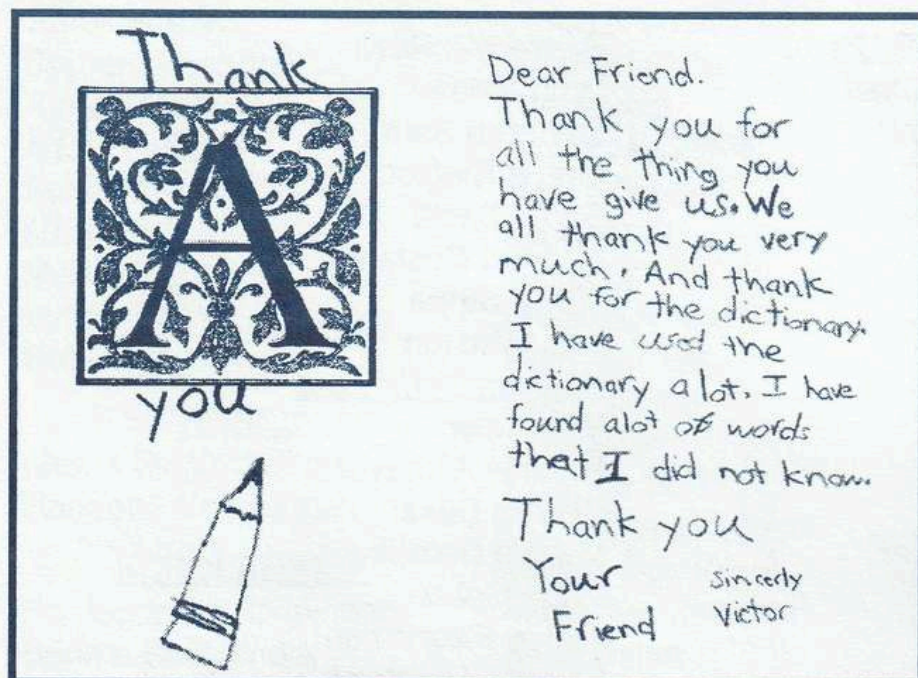 Thank
A
you
Dear Friend.
Thank you for
all the thing you
have give us. We
all thank you very
much. And thank
you for the dictionary.
I have used the
dictionary a lot. I have
found alot of words
that I did not know.
Thank you
Your
Friend
sincerly
Victor